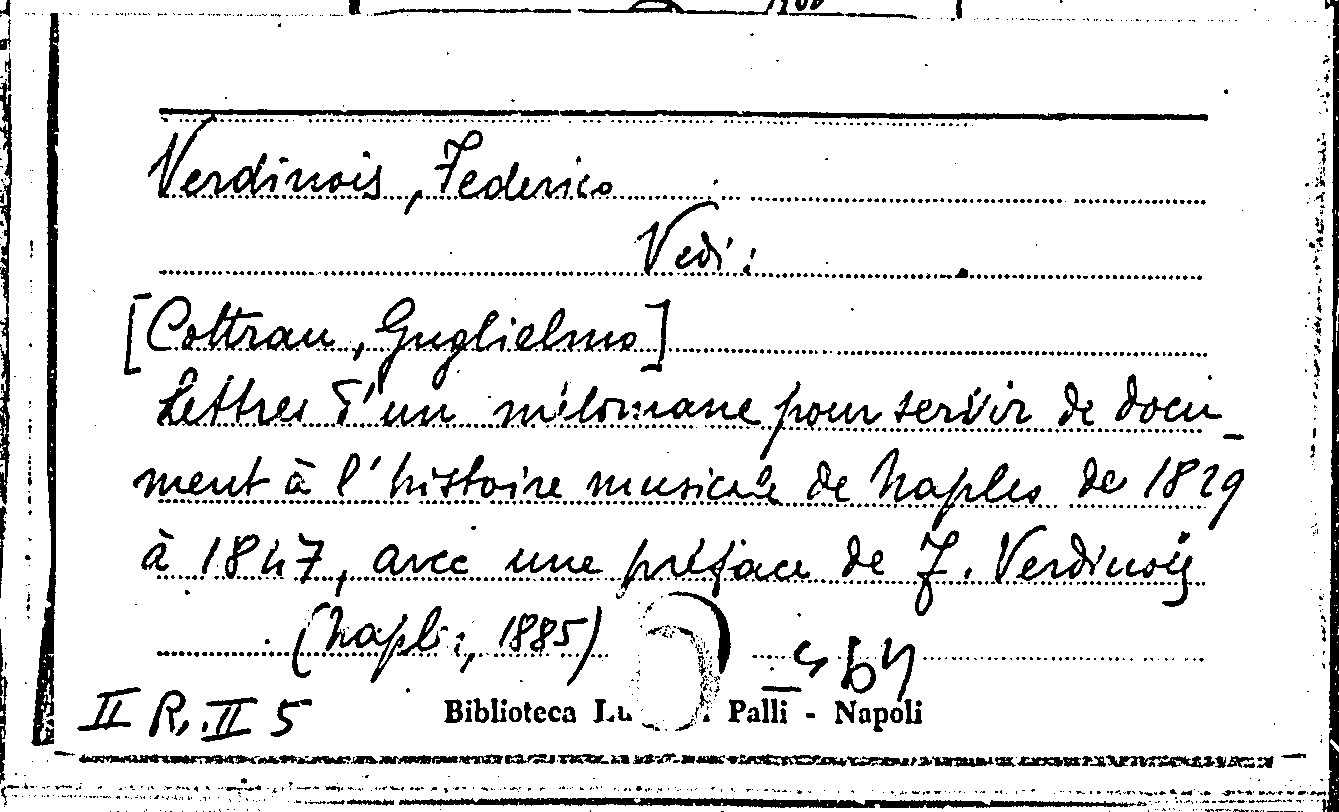 Verdinois, Federico
Vedi:
[Cottrau, Guglielmo]
Lettres d'un mélomane pour servir de docu-
ment à l'histoire musicale de Naples de 1829
à 1847, avec une préface de F. Verdinois
(Napoli, 1885)
II R. II 5
Biblioteca Palli - Napoli